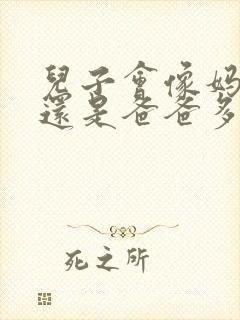 兒子會像媽
還是爸爸多
死之所